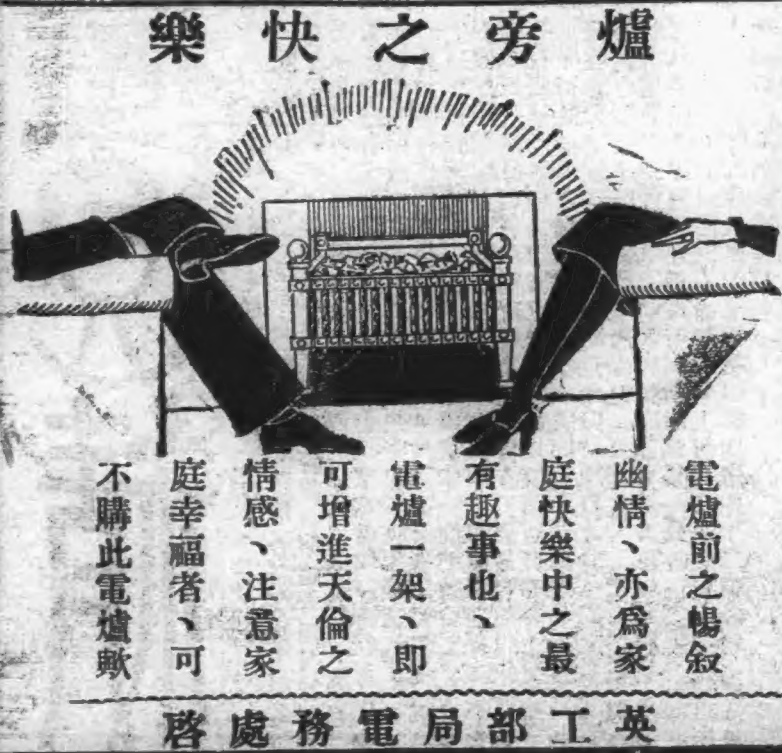 爐旁之快樂
電爐前之暢叙
幽情、亦爲家
庭快樂中之最
有趣事也、
電爐一架、即
可增進天倫之
情感、注意家
庭幸福者、可
不購此電爐歟
英工部局電務處啓